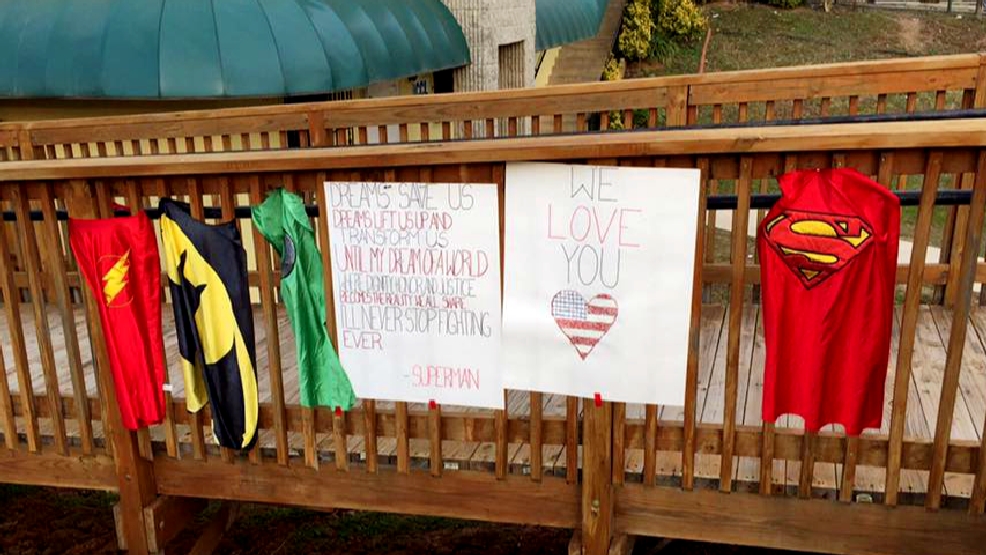 DREAMS SAVE US
DREAMS LIFT US UP AND
TRANSFORM US
UNTIL MY DREAM OF A WORLD
WHERE DIGNITY HONOR AND JUSTICE
BECOMES THE REALITY WE ALL SHARE
I'LL NEVER STOP FIGHTING
EVER
-SUPERMAN
WE
LOVE
YOU
S